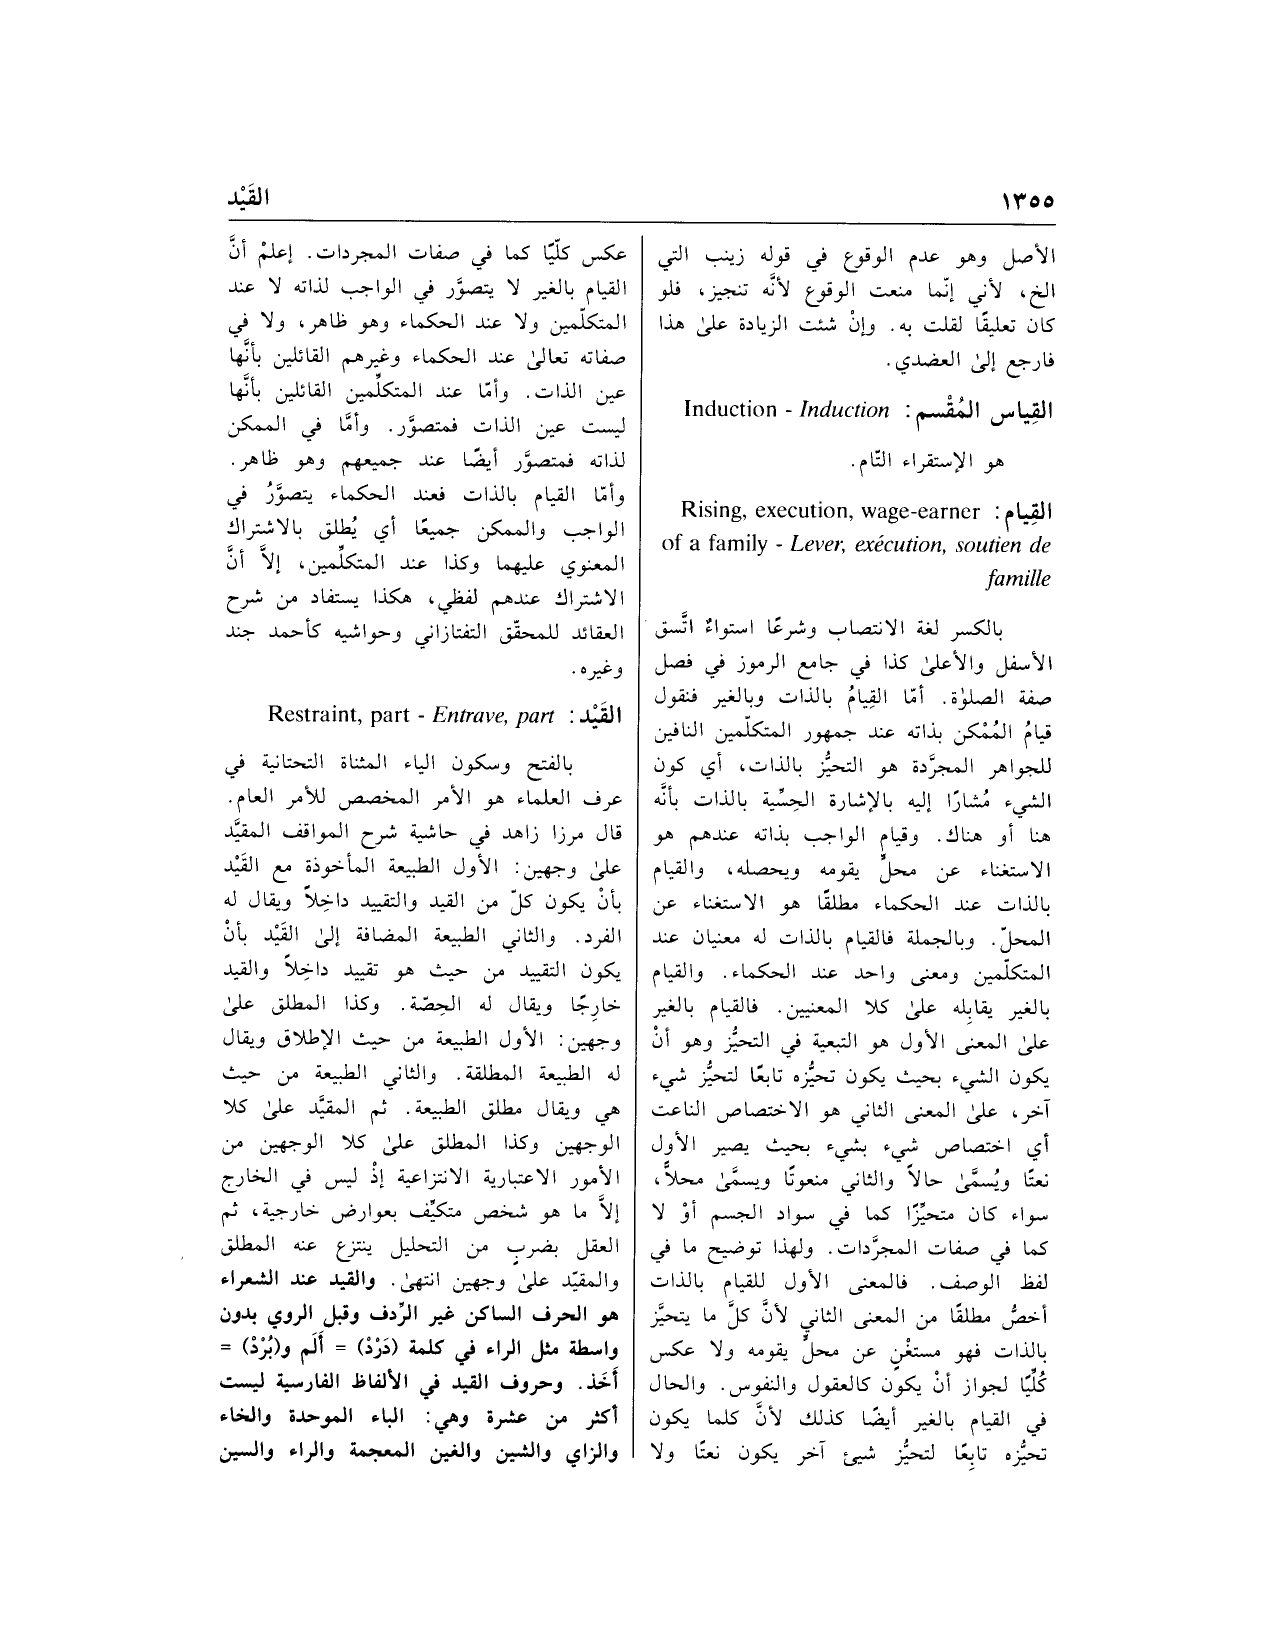 ١٣٥٥
القَيْد
الأصل وهو عدم الوقوع في قوله زينب التي
الخ، لأني إنّما منعت الوقوع لأنَّه تنجيز، فلو
كان تعليقًا لقلت به. وإنْ شئت الزيادة علىٰ هذا
فارجع إلىٰ العضدي.
القِياس المُقْسم: Induction - Induction
هو الإستقراء التّام.
القِيام: Rising, execution, wage-earner
of a family - Lever, exécution, soutien de
famille
بالكسر لغة الانتصاب وشرعًا استواءٌ اتَّسق
الأسفل والأعلىٰ كذا في جامع الرموز في فصل
صفة الصلوٰة. أمّا القِيامُ بالذات وبالغير فنقول
قيامُ المُمْكن بذاته عند جمهور المتكلّمين النافين
للجواهر المجرَّدة هو التحيُّز بالذات، أي كون
الشيء مُشارًا إليه بالإشارة الحِسِّية بالذات بأنَّه
هنا أو هناك. وقيام الواجب بذاته عندهم هو
الاستغناء عن محلٍّ يقومه ويحصله، والقيام
بالذات عند الحكماء مطلقًا هو الاستغناء عن
المحلّ. وبالجملة فالقيام بالذات له معنيان عند
المتكلّمين ومعنى واحد عند الحكماء. والقيام
بالغير يقابِله علىٰ كلا المعنيين. فالقيام بالغير
علىٰ المعنى الأول هو التبعية في التحيُّز وهو أنْ
يكون الشيء بحيث يكون تحيُّزه تابعًا لتحيُّز شيء
آخر، علىٰ المعنى الثاني هو الاختصاص الناعت
أي اختصاص شيء بشيء بحيث يصير الأول
نعتًا ويُسمَّىٰ حالاً والثاني منعوتًا ويسمَّىٰ محلاًّ،
سواء كان متحيِّزًا كما في سواد الجسم أوْ لا
كما في صفات المجرَّدات. ولهذا توضيح ما في
لفظ الوصف. فالمعنى الأول للقيام بالذات
أخصُّ مطلقًا من المعنى الثاني لأنَّ كلَّ ما يتحيَّز
بالذات فهو مستغْنٍ عن محلٍّ يقومه ولا عكس
كُلِّيًا لجواز أنْ يكون كالعقول والنفوس. والحال
في القيام بالغير أيضًا كذلك لأنَّ كلما يكون
تحيُّزه تابِعًا لتحيُّز شيئ آخر يكون نعتًا ولا
عكس كلّيًا كما في صفات المجردات. إعلمْ أنَّ
القيام بالغير لا يتصوَّر في الواجب لذاته لا عند
المتكلّمين ولا عند الحكماء وهو ظاهر، ولا في
صفاته تعالىٰ عند الحكماء وغيرهم القائلين بأنَّها
عين الذات. وأمّا عند المتكلِّمين القائلين بأنَّها
ليست عين الذات فمتصوَّر. وأمَّا في الممكن
لذاته فمتصوَّر أيضًا عند جميعهم وهو ظاهر.
وأمّا القيام بالذات فعند الحكماء يتصوَّرُ في
الواجب والممكن جميعًا أي يُطلق بالاشتراك
المعنوي عليهما وكذا عند المتكلِّمين، إلاَّ أنَّ
الاشتراك عندهم لفظي، هكذا يستفاد من شرح
العقائد للمحقّق التفتازاني وحواشيه كأحمد جند
وغيره.
القَيْد: Restraint, part - Entrave, part
بالفتح وسكون الياء المثناة التحتانية في
عرف العلماء هو الأمر المخصص للأمر العام.
قال مرزا زاهد في حاشية شرح المواقف المقيَّد
علىٰ وجهين: الأول الطبيعة المأخوذة مع القَيْد
بأنْ يكون كلّ من القيد والتقييد داخِلاً ويقال له
الفرد. والثاني الطبيعة المضافة إلىٰ القَيْد بأنْ
يكون التقييد من حيث هو تقييد داخِلاً والقيد
خارِجًا ويقال له الحِصّة. وكذا المطلق علىٰ
وجهين: الأول الطبيعة من حيث الإطلاق ويقال
له الطبيعة المطلقة. والثاني الطبيعة من حيث
هي ويقال مطلق الطبيعة. ثم المقيَّد علىٰ كلا
الوجهين وكذا المطلق علىٰ كلا الوجهين من
الأمور الاعتبارية الانتزاعية إذْ ليس في الخارج
إلاَّ ما هو شخص متكيِّف بعوارض خارجية، ثم
العقل بضربٍ من التحليل ينتزع عنه المطلق
والمقيّد علىٰ وجهين انتهىٰ. والقيد عند الشعراء
هو الحرف الساكن غير الرِّدف وقبل الروي بدون
واسطة مثل الراء في كلمة (دَرْدْ) = أَلَم و(بُرْدْ) =
أَخَذ. وحروف القيد في الألفاظ الفارسية ليست
أكثر من عشرة وهي: الباء الموحدة والخاء
والزاي والشين والغين المعجمة والراء والسين